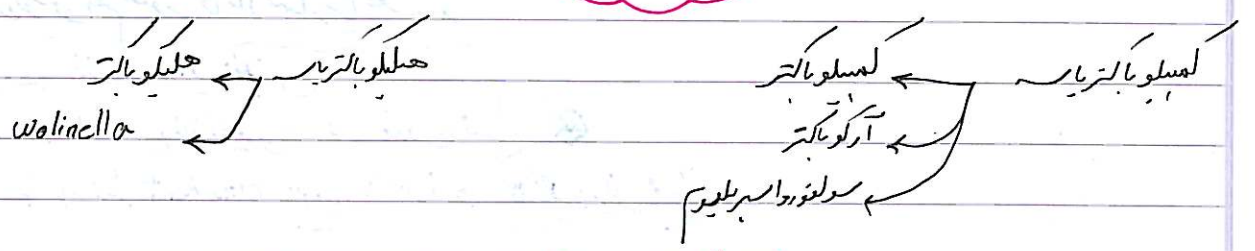 کمپیلوباکتریاسه ← کمپیلوباکتر
آرکوباکتر
سولفورواسپریلیوم
هلیکوباکتریاسه ← هلیکوباکتر
wolinella